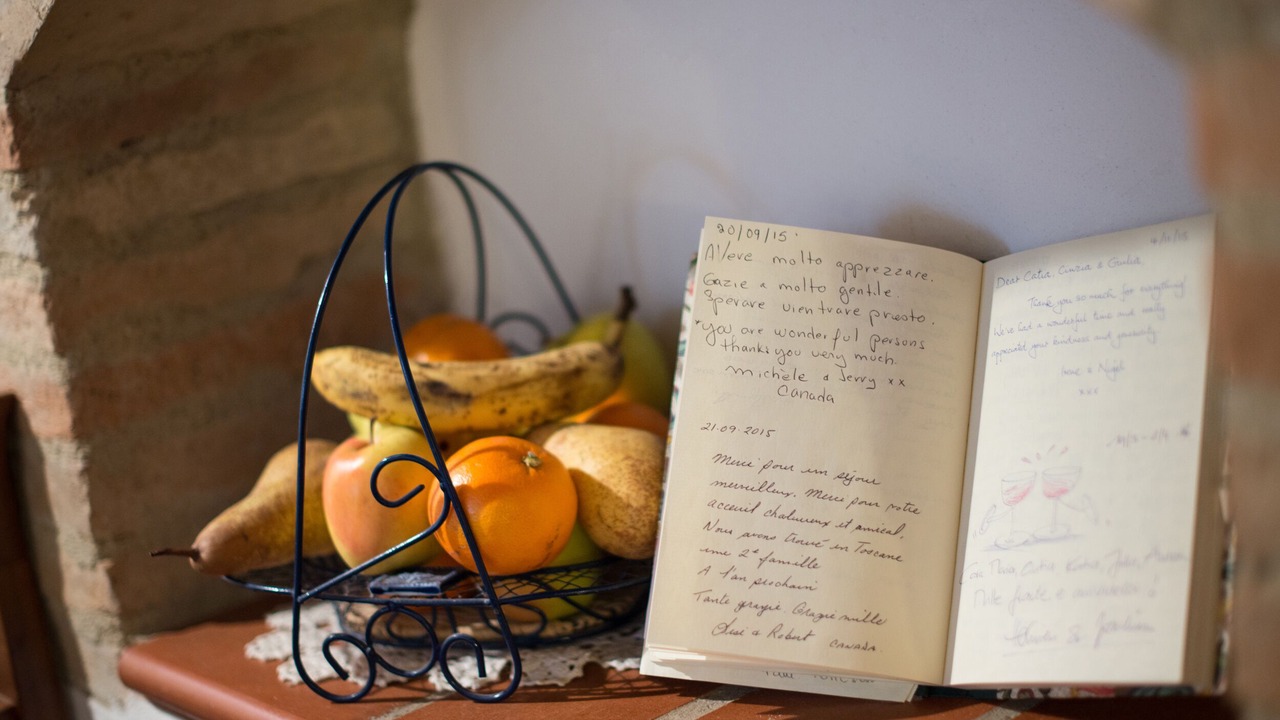 20/09/15
Al'eve molto apprezzare.
Gazie a molto gentile.
Sperare vientrare priesto.
You are wonderful persons
thanks you very much.
Michèle & Jerry xx
Canada
21-09-2015
Merci pour un séjour
merveilleux. Merci pour votre
acceuil chalureux et amical,
Nous avons trouvé en Toscane
une 2e famille
A l'an prochain
Tante grazie. Grazie mille
& Robert CANADA.
Dear Catia, Cinzia & Giulia,
Thank you so much for everything!
We've had a wonderful time and really
appreciated your kindness and generosity
Irene & Nigel
xxx